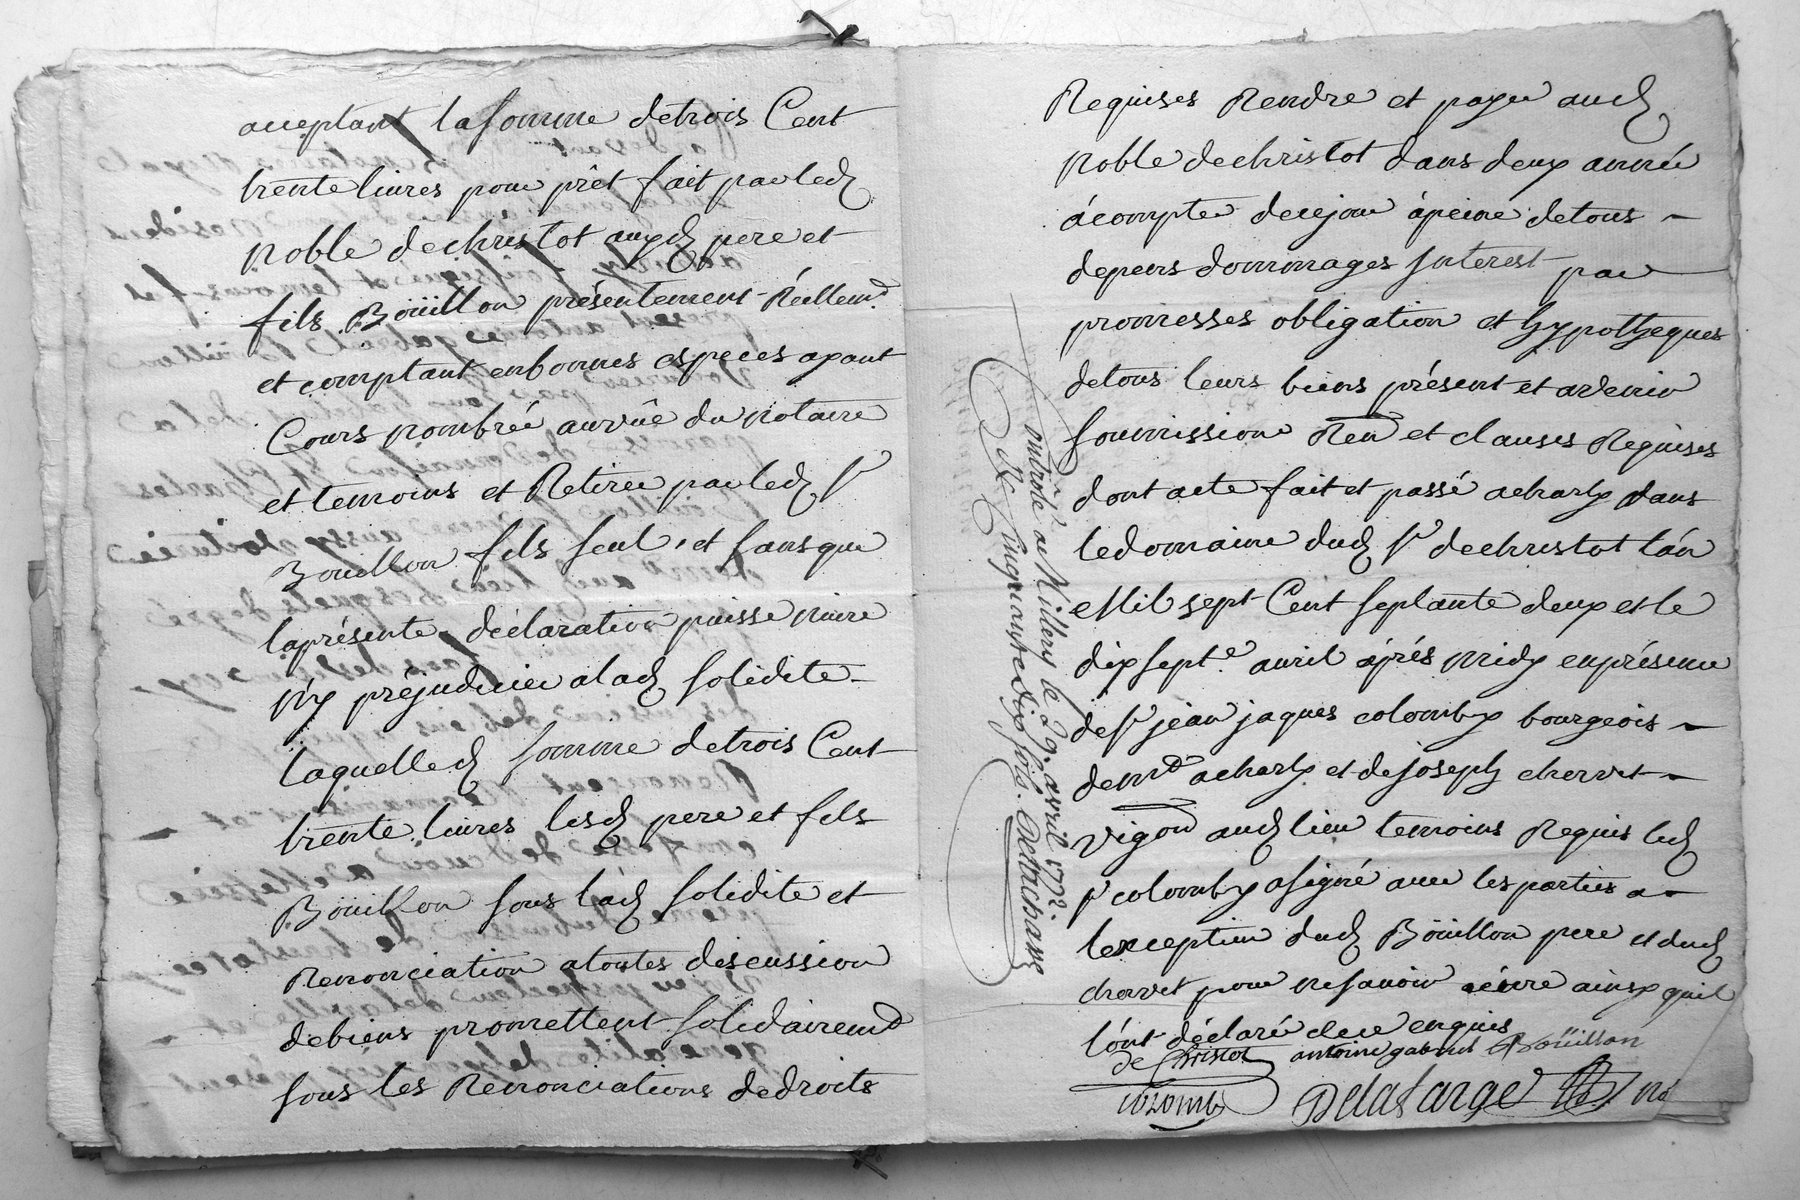 acceptant la somme de trois Cent
trente livres pour prêt fait par led
noble de christot auxd pere et
fils Boüillon présentement Réellemt
et comptant en bonnes especes ayant
Cours nombrée au vûe du notaire
et temoins et Retirée par led sr
Boüillon fils seul, et sans que
la présente déclaration puisse nuire
n'y préjudicier a lad solidité
laquelled somme de trois Cent
trente livres lesd pere et fils
Boüillon sous lád solidité et
Renonciation a toutes discussion
de biens promettent solidairemt
sous les Renonciations de droits
Requises Rendre et payer aud
noble de christot dans deux année
á compter de ce jour á peine de tous
depens dommages Interest par
promesses obligation et hypotheques
de tous leurs biens présent et avenir
soumission Ren et clauses Requises
dont acte fait et passé a charly dans
le domaine dud sr de christot lán
Mil sept Cent septante deux et le
dix septe avril áprés midy en présence
de sr jéan jaques colomby bourgeois
de md a charly et de joseph chervet
vigon aud lieu temoins Requis led
sr colomby a signé avec les parties a
lexception dud Boüillon pere et dud
chervet pour ne savoir écire ainsy quil
lónt déclaré de ce enquis
de Christot antoine gabriel Boüillon
colomby Delafarge no
Controlé a Millery le 29. avril 1772.
R. Cinquante dix sols. Delachasse